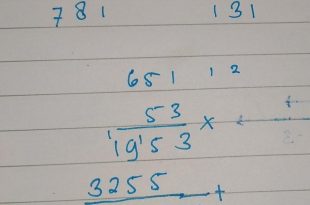 781 131
651 12
53 ×
1953
3255 +